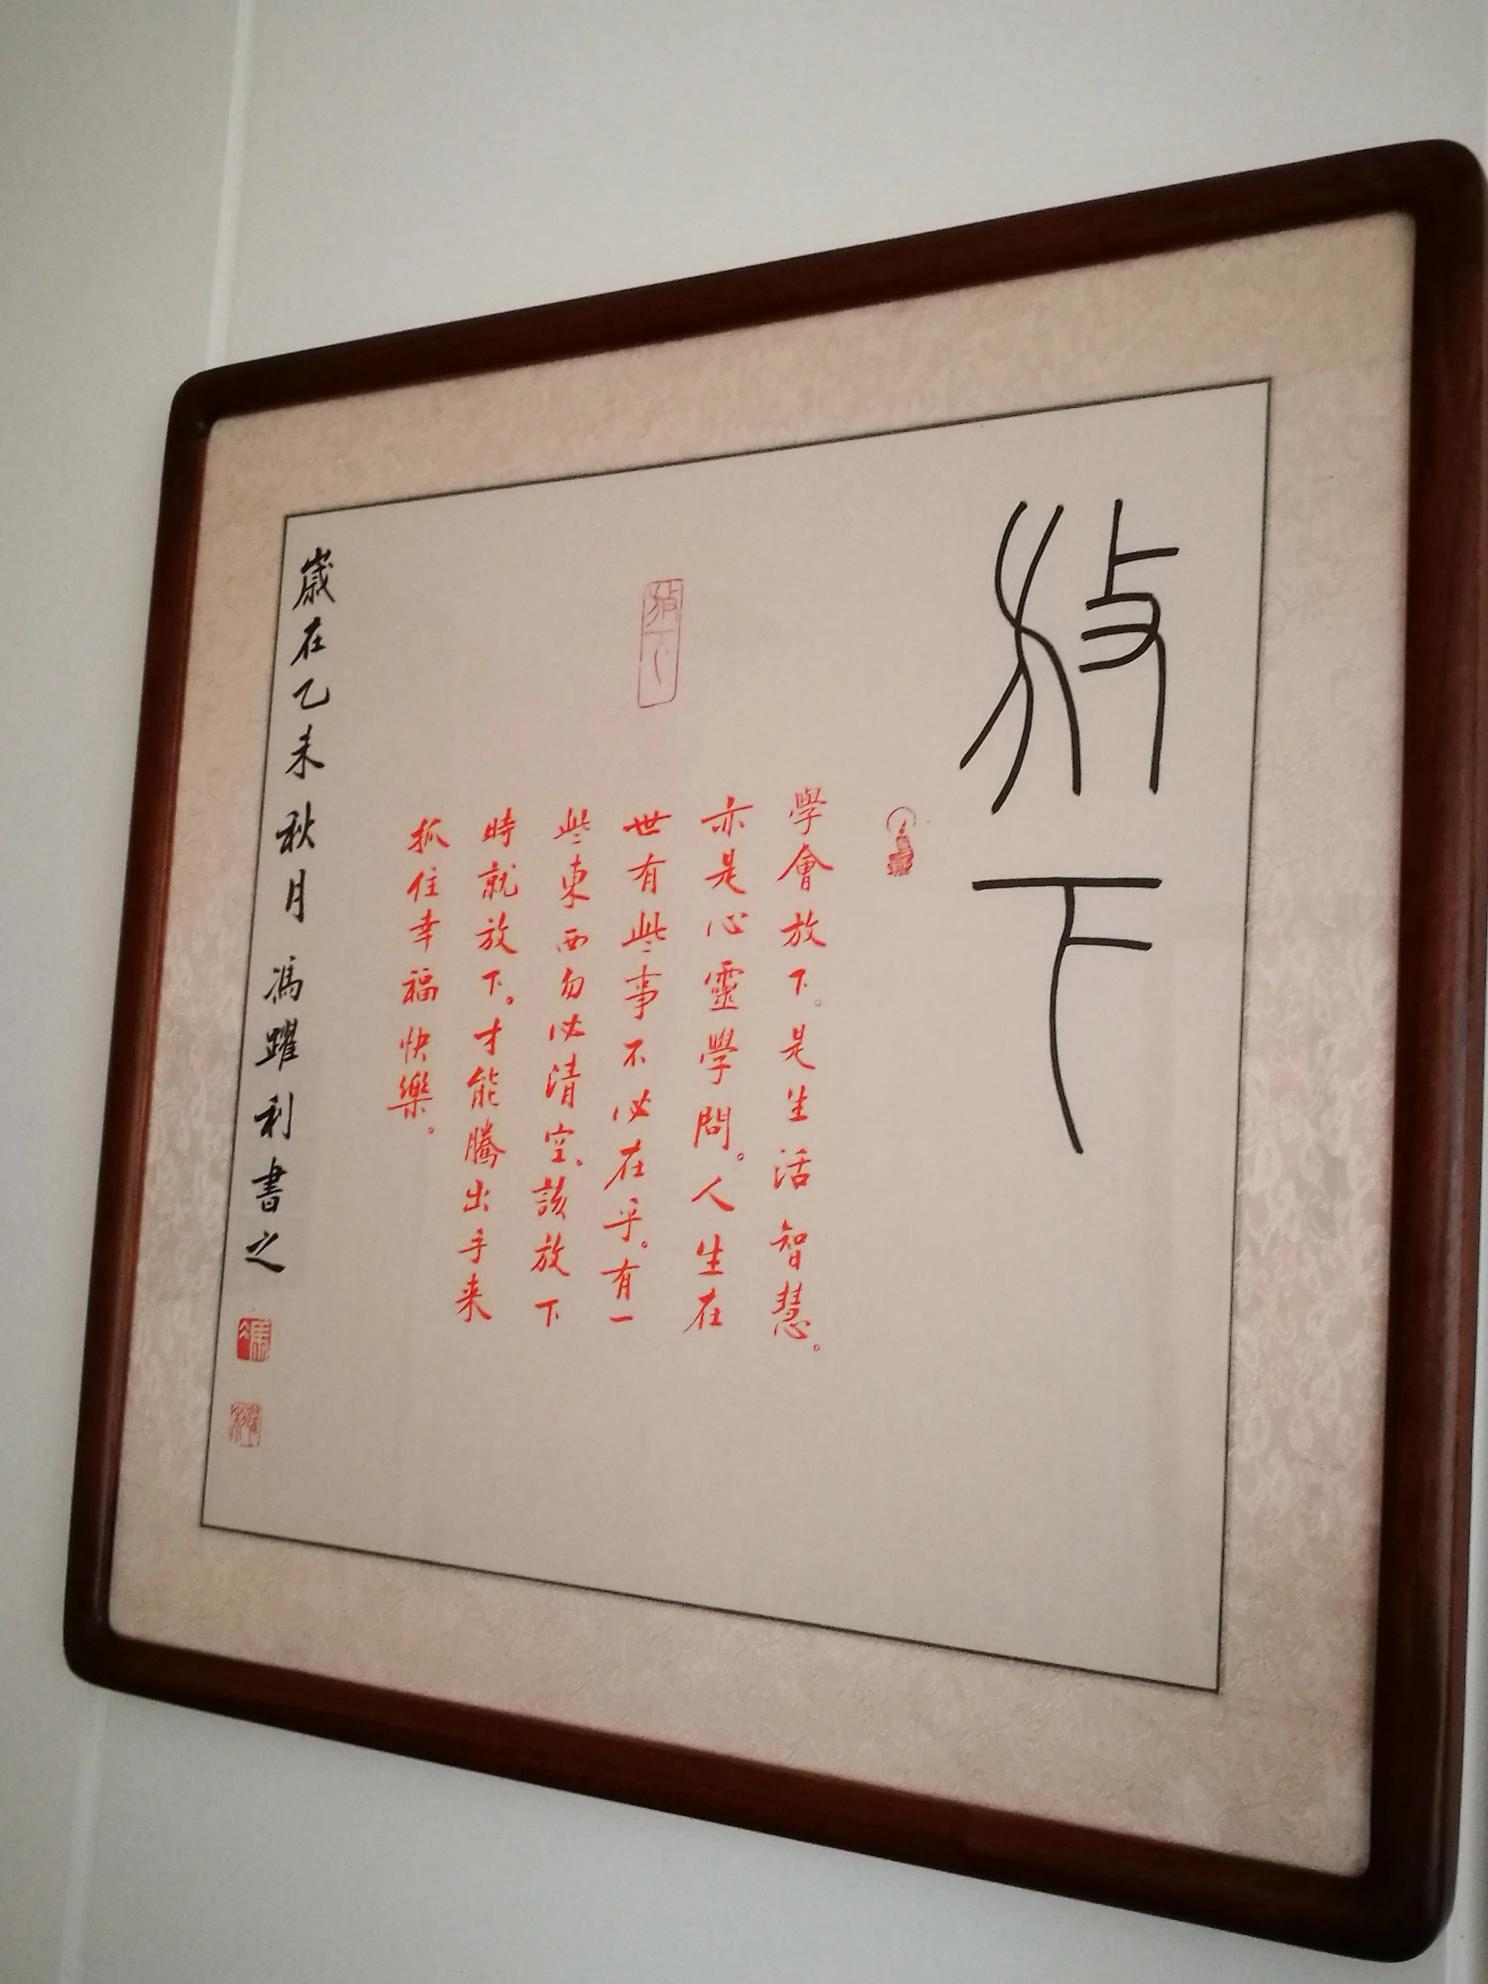 放下
學會放下。是生活智慧。
亦是心靈學問。人生在
世有些事不必在乎。有一
些東西勿必清空。該放下
時就放下。才能騰出手来
抓住幸福快樂。
放下
歳在乙未秋月馮躍利書之